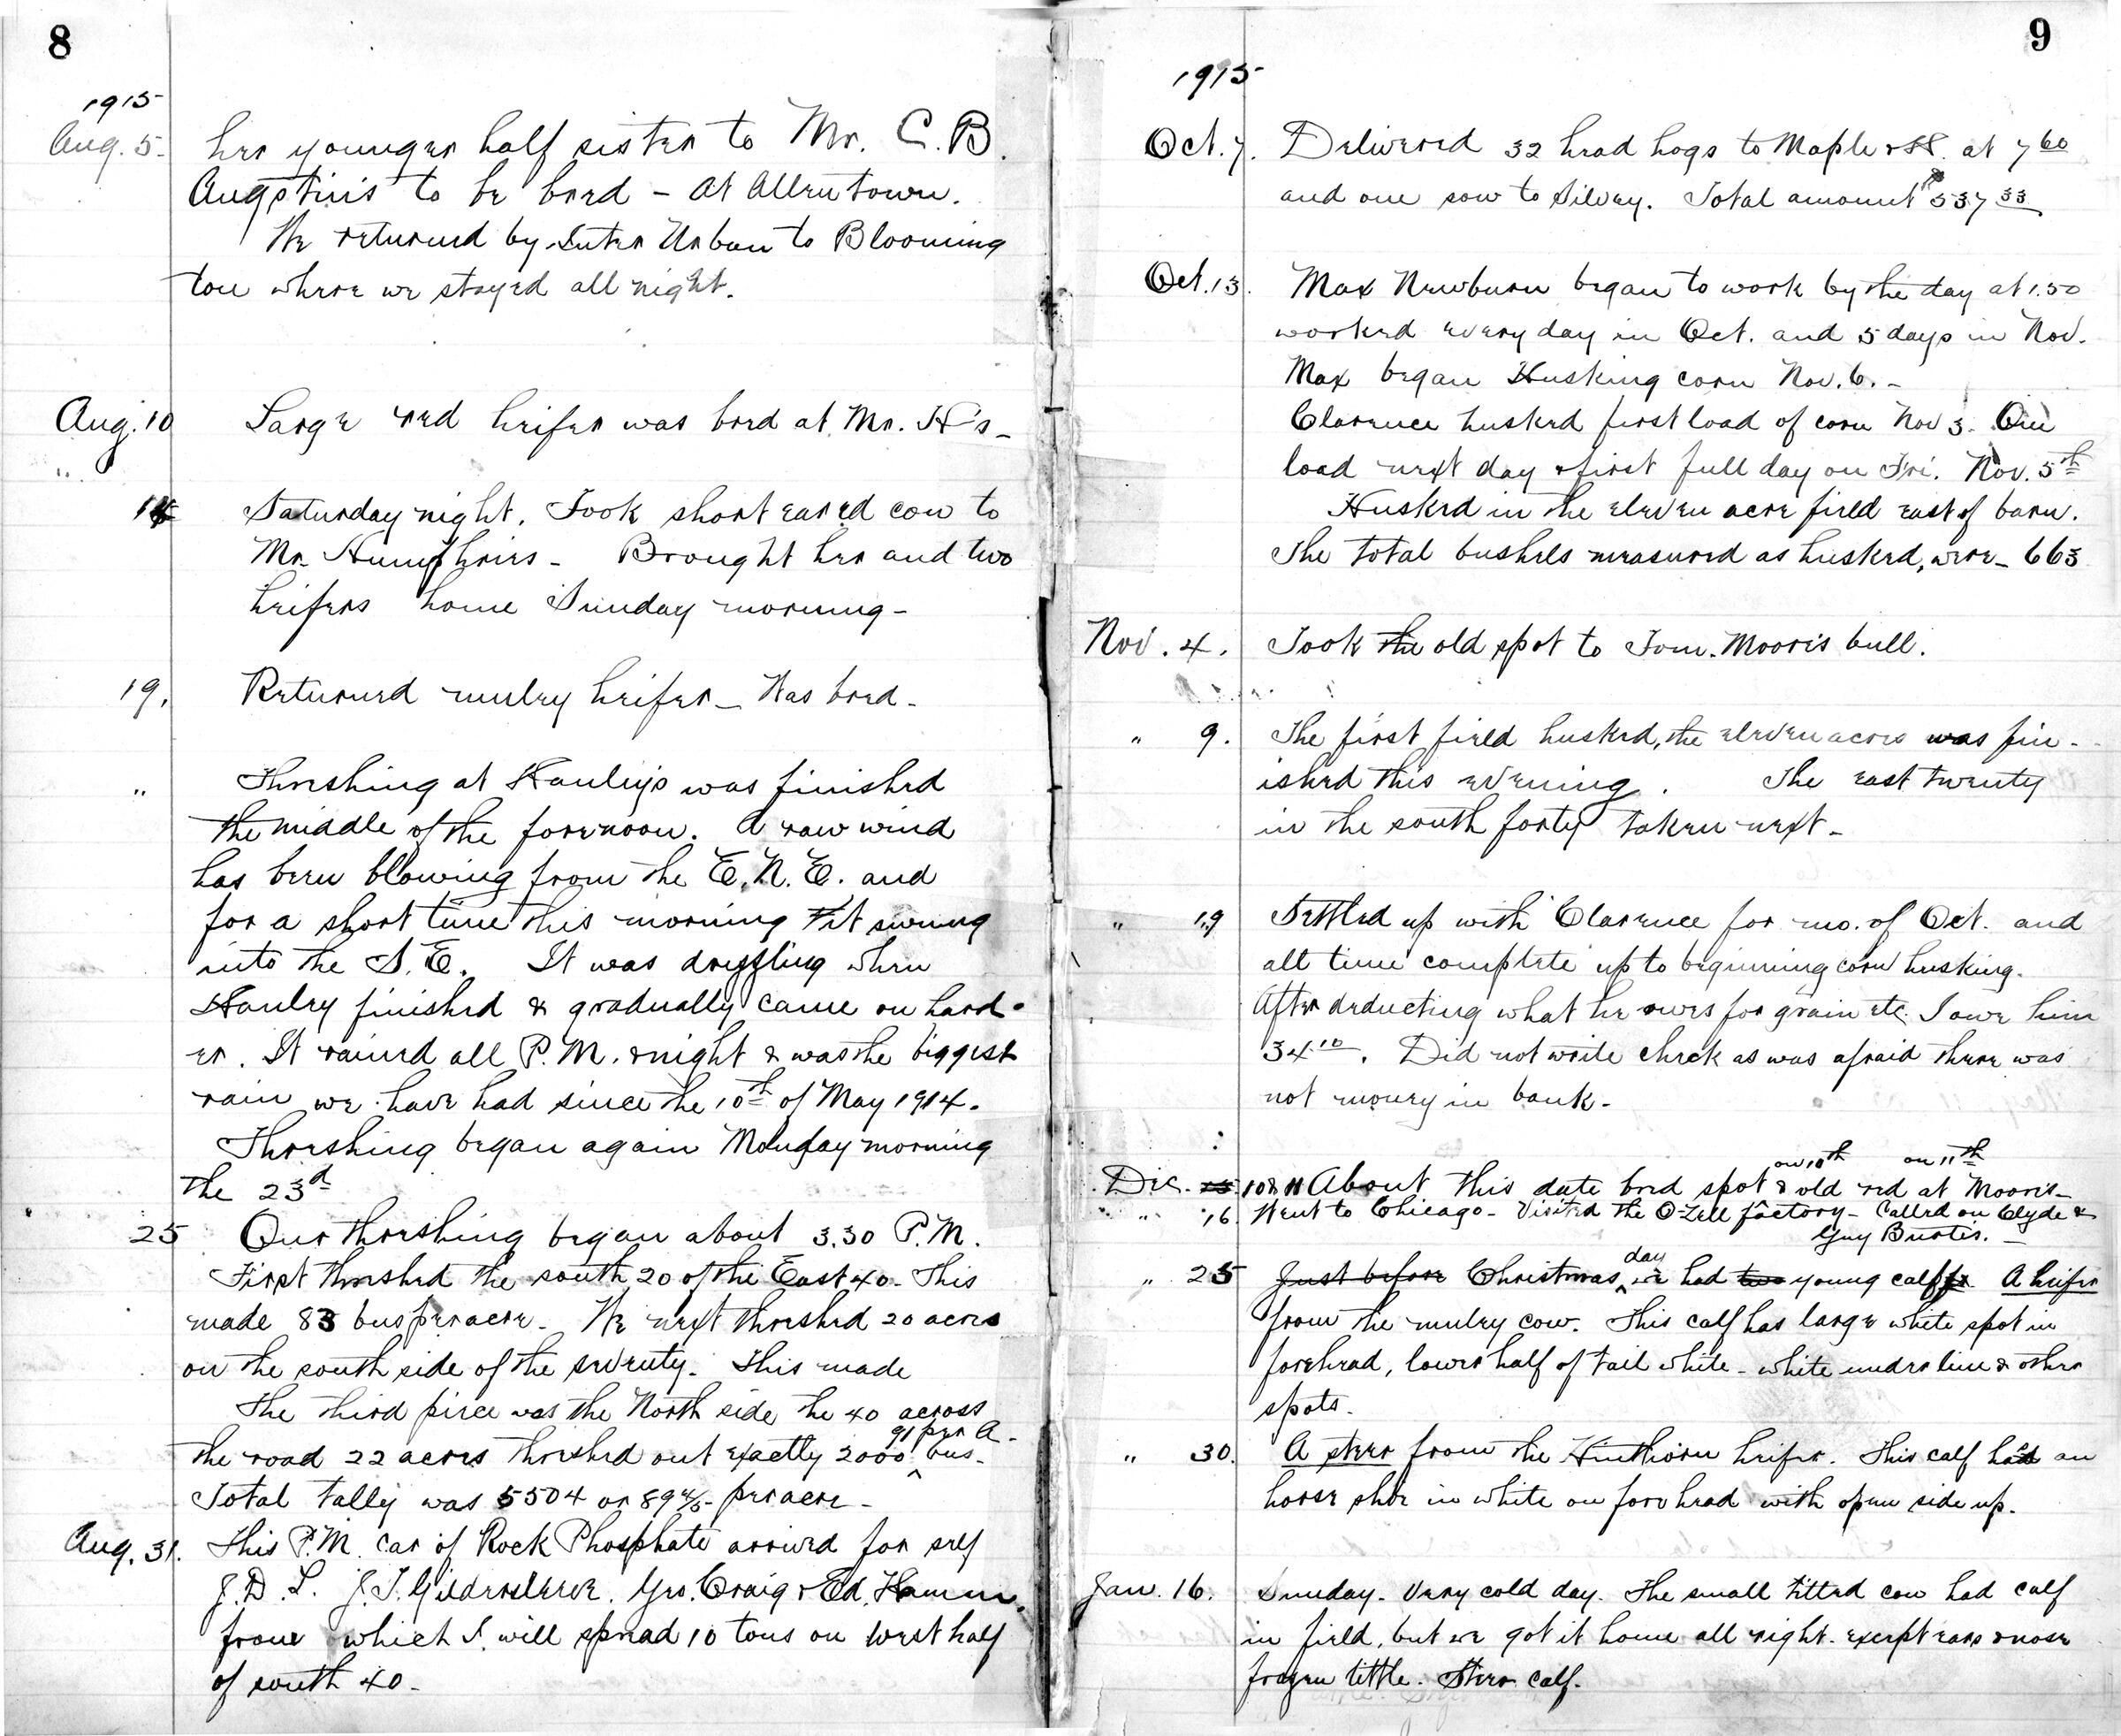 8
1915
Aug. 5. her younger half sister to Mr. C. B.
Augstin's to be bred - at Allentown.
We returned by Inter Urban to Blooming
ton where we stayed all night.
Aug. 10 Large red heifer was bred at Mr. H's -
" 14 Saturday night. Took short eared cow to
Mr. Humphries - Brought her and two
heifers home Sunday morning -
19. Returned muley heifer - Was bred -
" Threshing at Hanley's was finished
the middle of the forenoon. A raw wind
has been blowing from the E. N. E. and
for a short time this morning it swung
into the S. E. It was drizzling when
Hanley finished & gradually came on hard-
er. It rained all P. M. & night & was the biggest
rain we have had since the 10th of May 1914.
Threshing began again Monday morning
the 23d
25 Our threshing began about 3.30 P. M.
First threshed the south 20 of the East 40 - This
made 83 bus per acre - We next threshed 20 acres
on the south side of the seventy. This made
The third piece was the North side the 40 across
91 per A -
the road 22 acres threshed out exactly 2000 bus -
Total tally was 5504 or 89 4/5 - per acre -
Aug. 31. This P. M. car of Rock Phosphate arrived for self
J. D. L. J. T. Gildersleeve. Geo. Craig & Ed. Hamm.
from which I will spread 10 tons on west half
of south 40 -
9
1915
Oct. 7. Delivered 32 head hogs to Maple & at 7 60
and one sow to Silvey. Total amount $537 33
Oct. 13. Max Newburn began to work by the day at 1.50
worked every day in Oct. and 5 days in Nov.
Max began Husking corn Nov. 6. -
Clarence husked first load of corn Nov 3. One
load next day & first full day on Fri. Nov. 5th
Husked in the eleven acre field east of barn.
The total bushels measured as husked, were - 663
Nov. 4. Took the old spot to Tom. Moore's bull.
" 9. The first field husked, the eleven acres was fin-
ished this evening. The east twenty
in the south forty taken next -
" 19 Settled up with Clarence for mo. of Oct. and
all time complete up to beginning corn husking.
After deducting what he owes for grain etc. I owe him
34 10. Did not write check as was afraid there was
not money in bank -
on 10th on 11th
Dec. 10 & 11 About this date bred spot & old red at Moore's -
" 16. Went to Chicago - Visited the O-Zell factory - Called on Clyde &
Guy Bustis. -
day
" 25 Just before Christmas we had two young calf A heifer
from the muley cow. This calf has large white spot in
forehead, lower half of tail white - white under line & other
spots.
" 30. A steer from the Hinthorn heifer. This calf has an
horse shoe in white on forehead with open side up.
Jan. 16. Sunday - Very cold day. The small titted cow had calf
in field, but we got it home all right - except ears & nose
frozen little. Steer calf.